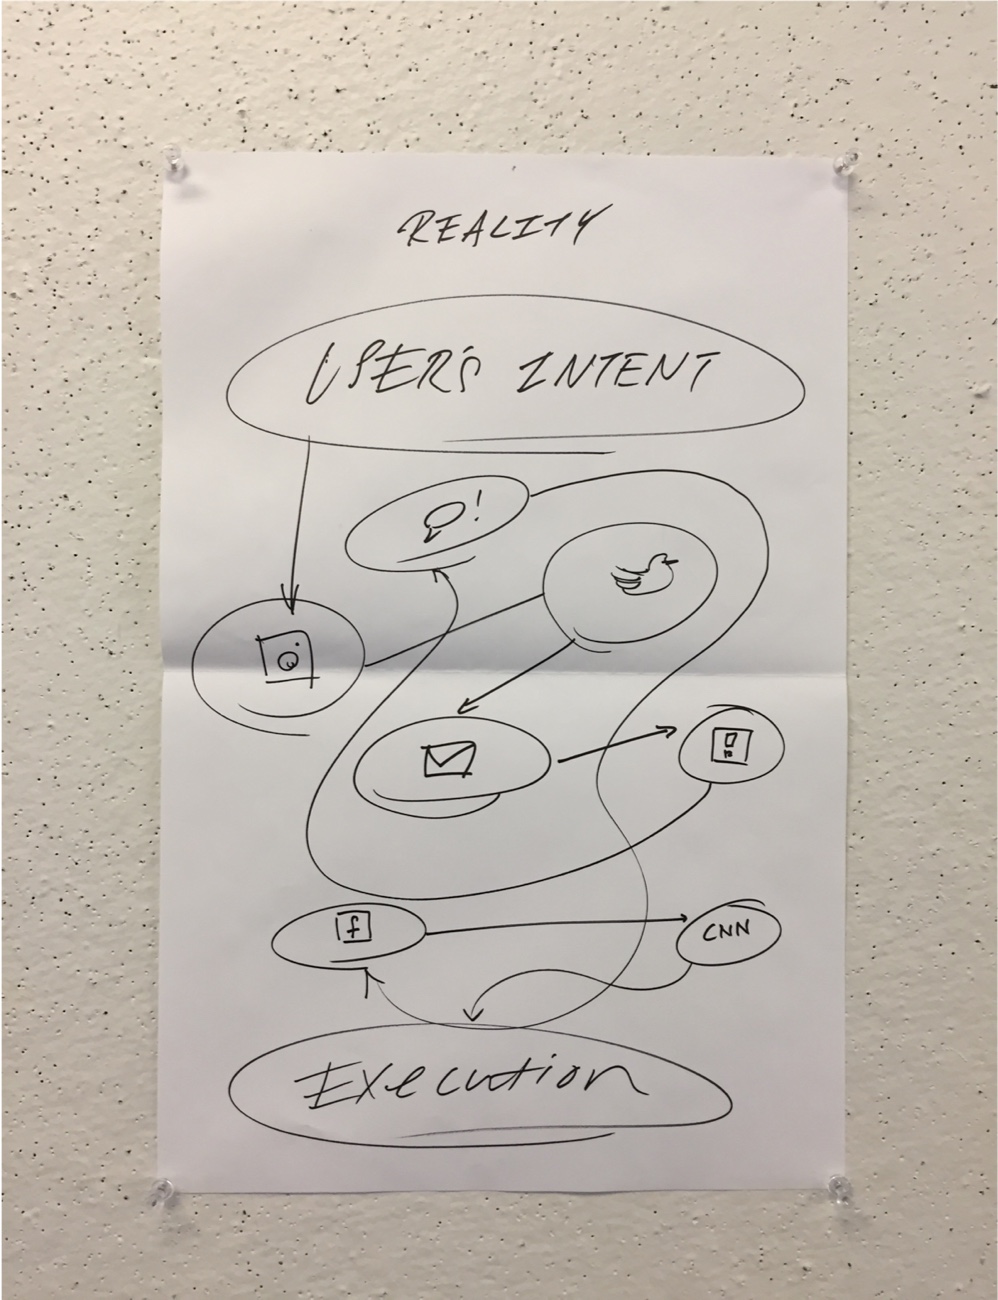 REALITY
USER'S INTENT
!
f
CNN
Execution